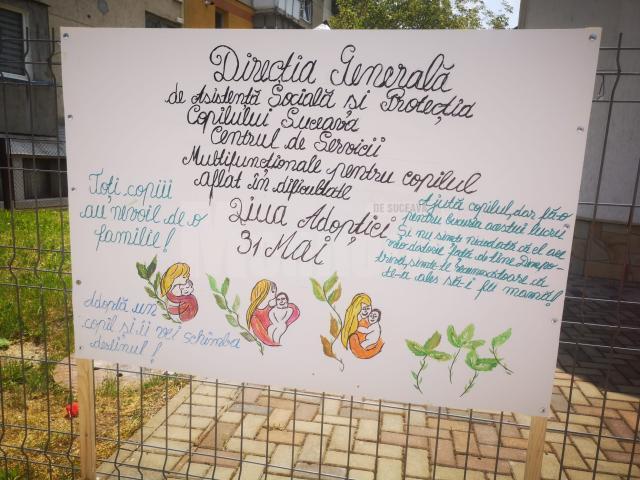 Direcția Generală
de Asistență Socială și Protecția
Copilului Suceava
Centrul de Servicii
Multifuncționale pentru copilul
aflat în dificultate
Ziua Adopției
31 Mai
Toți copiii
au nevoie de o
familie!
Adoptă un
copil și-i vei schimba
destinul!
Ajută copilul, dar fă-o
pentru bucuria acestui lucru
Și nu simți niciodată că el are
vreo datorie față de tine Dimpo-
trivă, simte-te recunoscătoare că
te-a ales să-i fii mamă!
DE SUCEAVA